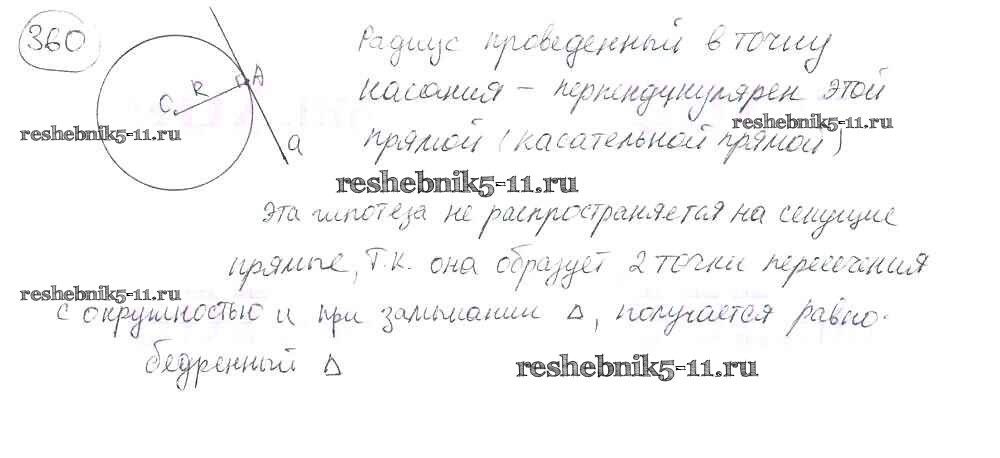 360
Радиус проведенный в точку
касания – перпендикулярен этой
прямой (касательной прямой)
O R A
a
reshebnik5-11.ru
reshebnik5-11.ru
reshebnik5-11.ru
Эта гипотеза не распространяется на секущие
прямые, т.к. она образует 2 точки пересечения
reshebnik5-11.ru
с окружностью и при замыкании Δ, получается равно-
бедренный Δ
reshebnik5-11.ru